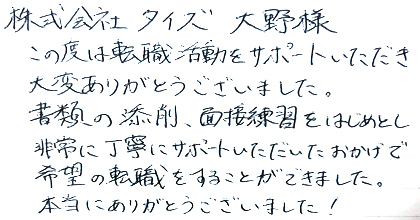 株式会社 タイズ 大野様
この度は転職活動をサポートいただき
大変ありがとうございました。
書類の添削、面接練習をはじめとし
非常に丁寧にサポートいただいたおかげで
希望の転職をすることができました。
本当にありがとうございました!